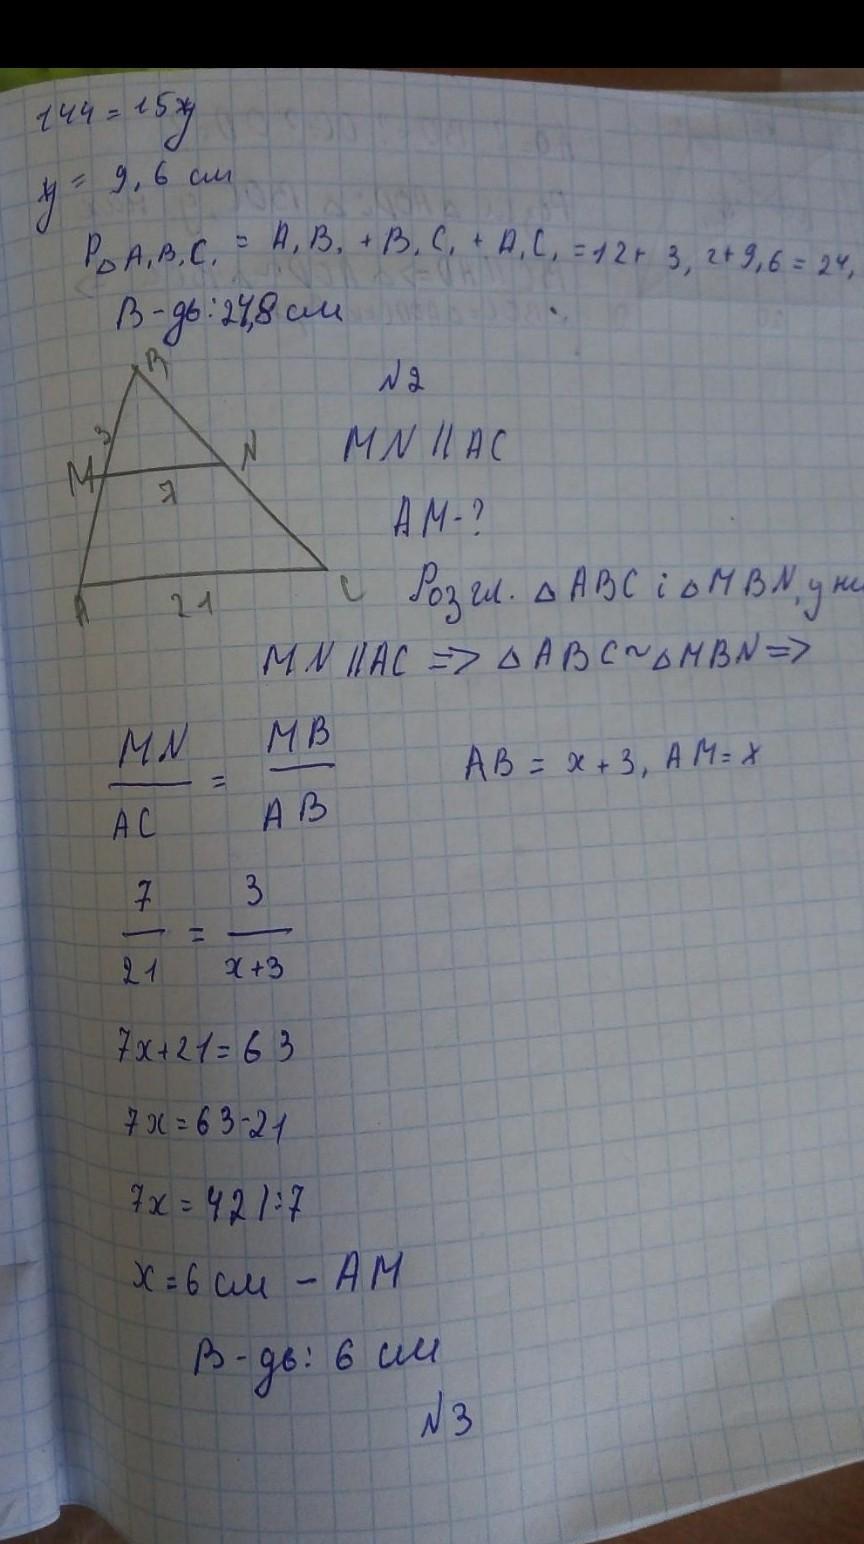 144 = 15y
y = 9,6 см
P△A₁B₁C₁ = A₁B₁ + B₁C₁ + A₁C₁ = 12 + 3,2 + 9,6 = 24,
В-дь: 24,8 см
B
3
M
N
7
A
21
C
№2
MN || AC
AM - ?
Розгл. △ABC і △MBN, у
MN || AC => △ABC ~ △MBN =>
MN/AC = MB/AB
AB = x + 3, AM = x
7/21 = 3/x+3
7x + 21 = 63
7x = 63 - 21
7x = 42 | : 7
x = 6 см - AM
В-дь: 6 см
№3